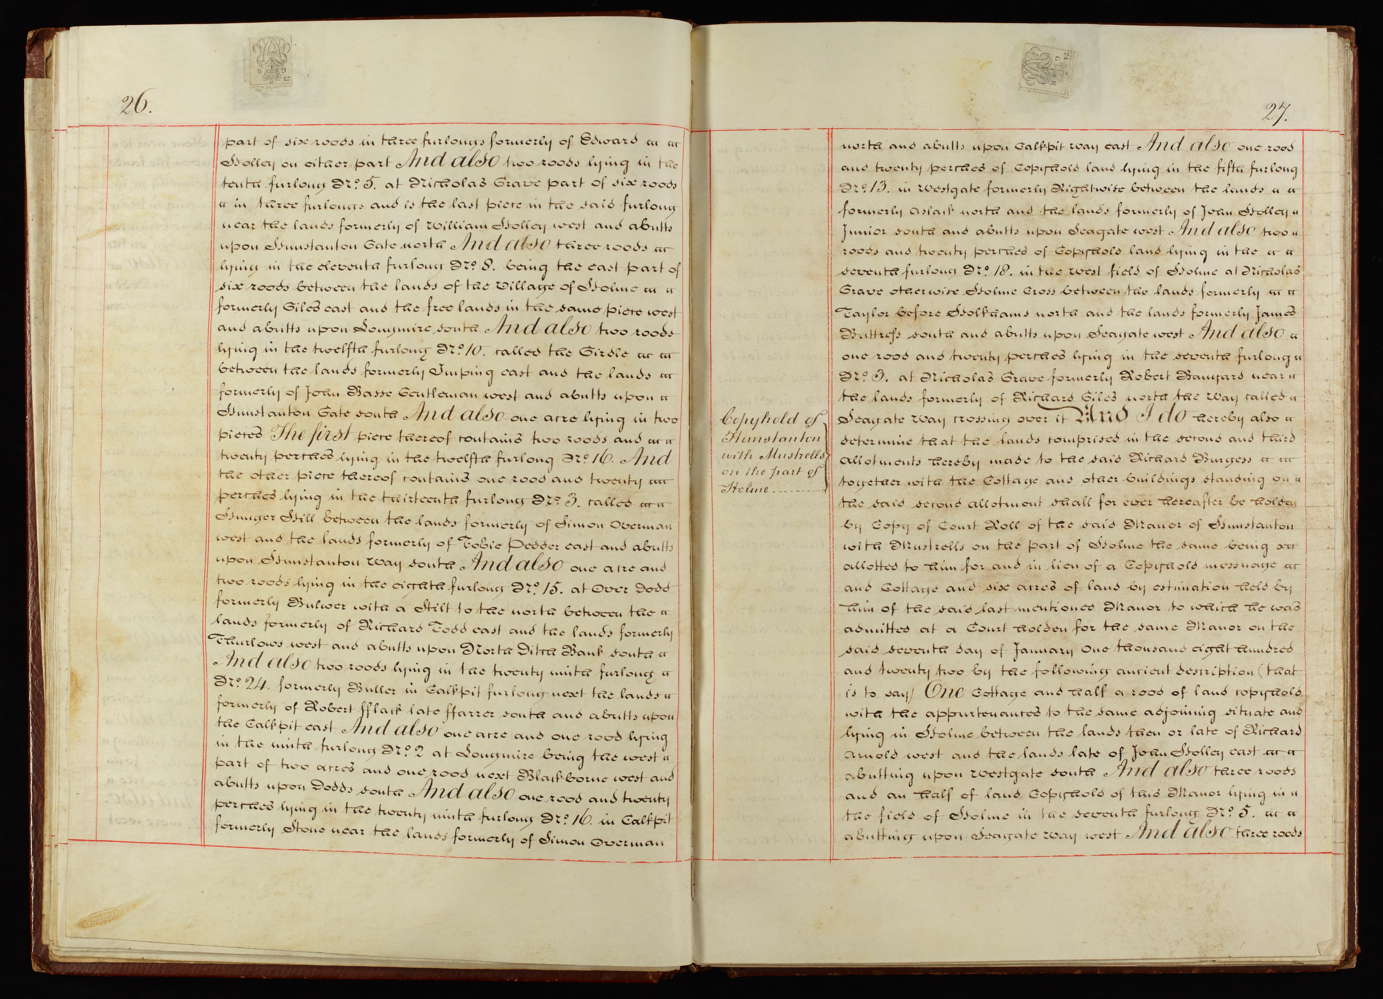 26.
part of six roods in three furlongs formerly of Edward
Holley on either part And also two roods lying in the
tenth furlong No. 5. at Nicholas Grave part of six roods
in three furlongs and is the last piece in the said furlong
near the lands formerly of William Holley west and abutts
upon Hunstanton Gate north And also three roods
lying in the eleventh furlong No. 8. being the east part of
six roods between the lands of the Village of Holme
formerly Giles east and the free lands in the same piece west
and abutts upon Longmire south And also two roods
lying in the twelfth furlong No. 10. called the Girdle
between the lands formerly east and the lands
formerly of John Basse Gentleman west and abutts upon
Hunstanton Gate south And also one acre lying in two
pieces The first piece thereof contains two roods and
twenty perches lying in the twelfth furlong No. 16. And
the other piece thereof contains one rood and twenty
perches lying in the thirteenth furlong No. 3. called
Hunger Hill between the lands formerly of Simon Overman
west and the lands formerly of Tobie Pedder east and abutts
upon Hunstanton Way south And also one acre and
two roods lying in the eighth furlong No. 15. at Over Dodd
formerly Bulwer with a Stilt to the north between the
lands formerly of Richard Todd east and the lands formerly
Thurlows west and abutts upon North Ditch Bank south
And also two roods lying in the twenty ninth furlong
No. 24. formerly Buller in Calkpit furlong next the lands
formerly of Robert fflack late ffarrer south and abutts upon
the Calkpit east And also one acre and one rood lying
in the ninth furlong No. 2 at Longmire being the west
part of two acres and one rood next Blackborne west and
abutts upon Dodds south And also one rood and twenty
perches lying in the twenty ninth furlong No. 16. in Calkpit
formerly Stone near the lands formerly of Simon Overman
27.
north and abutts upon Calkpit way east And also one rood
and twenty perches of Copyhold land lying in the fifth furlong
No. 13. in Westgate formerly Rightwise between the lands
formerly Aslack north and the lands formerly of John Holley
Junior south and abutts upon Seagate west And also two
roods and twenty perches of Copyhold land lying in the
seventh furlong No. 18. in the west field of Holme at Nicholas
Grave otherwise Holme Cross between the lands formerly
Taylor before Holkhams north and the lands formerly James
Buttress south and abutts upon Seagate west And also
one rood and twenty perches lying in the seventh furlong
No. 3. at Nicholas Grave formerly Robert Banyard near
the lands formerly of Richard Giles north the way called
Seagate Way crossing over it And I do hereby also
Copyhold of
Hunstanton
with Mustrells
on the part of
Holme
determine that the lands comprised in the second and third
allotments hereby made to the said Richard Burgess
together with the Cottage and other buildings standing on
the said second allotment shall for ever hereafter be holden
by Copy of Court Roll of the said Manor of Hunstanton
with Mustrells on the part of Holme the same being
allotted to him for and in lieu of a Copyhold messuage
and Cottage and six acres of land by estimation held by
him of the said last mentioned Manor to which he was
admitted at a Court holden for the same Manor on the
said seventh day of January One thousand eight hundred
and twenty two by the following ancient description (that
is to say) One Cottage and half a rood of land copyhold
with the appurtenances to the same adjoining situate and
lying in Holme between the lands then or late of Richard
Arnold west and the lands late of John Holley east
abutting upon Westgate south And also three roods
and an half of land Copyhold of this Manor lying in
the field of Holme in the seventh furlong No. 5.
abutting upon Seagate way west And also three roods